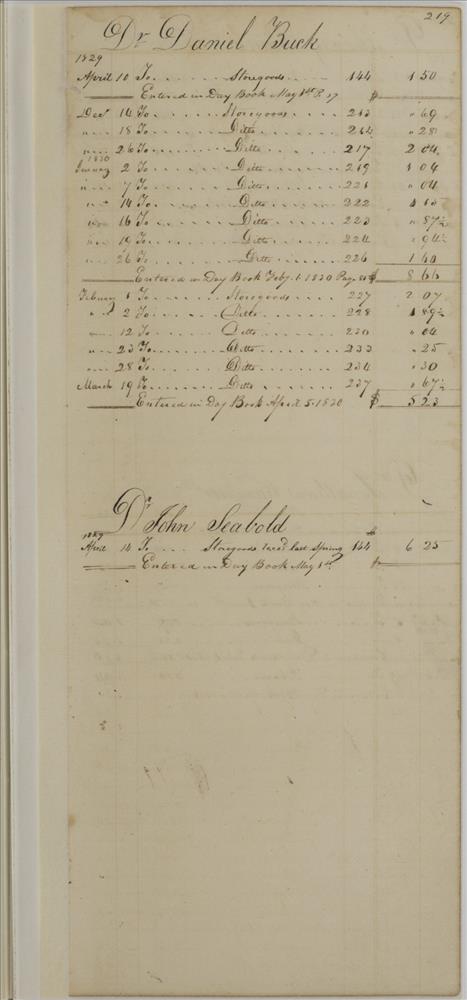 219
Dr Daniel Buck
1829
April 10 To Storegoods 144 1 50
Entered in Day Book May 1st P. 17 $
Decr 14 To Storegoods 213 " 69
" 18 To Ditto 214 " 28
" 26 To Ditto 217 2 04
1830
January 2 To Ditto 219 1 04
" 7 To Ditto 221 " 04
" 14 To Ditto 222 1 13
" 16 To Ditto 223 " 87½
" 19 To Ditto 224 " 94½
" 26 To Ditto 226 1 40
Entered in Day Book Feby. 1. 1830 Page $ 8 66
Febuary 1 To Storegoods 227 2 07
" 2 To Ditto 228 1 89½
" 12 To Ditto 230 " 04
" 23 To Ditto 233 " 25
" 28 To Ditto 234 " 30
March 19 To Ditto 237 " 67½
Entered in Day Book April 5. 1830 $ 5 23
Dr John Seabold
1829 $
April 14 To Storegoods last Spring 144 6 25
Entered in Day Book May 1st $